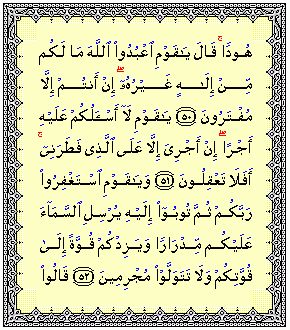 هُودًا ۚ قَالَ يَـٰقَوْمِ ٱعْبُدُوا۟ ٱللَّهَ مَا لَكُم
مِّنْ إِلَـٰهٍ غَيْرُهُۥٓ ۖ إِنْ أَنتُمْ إِلَّا
مُفْتَرُونَ ﴿٥٠﴾ يَـٰقَوْمِ لَآ أَسْـَٔلُكُمْ عَلَيْهِ
أَجْرًا ۖ إِنْ أَجْرِىَ إِلَّا عَلَى ٱلَّذِى فَطَرَنِىٓ ۚ
أَفَلَا تَعْقِلُونَ ﴿٥١﴾ وَيَـٰقَوْمِ ٱسْتَغْفِرُوا۟
رَبَّكُمْ ثُمَّ تُوبُوٓا۟ إِلَيْهِ يُرْسِلِ ٱلسَّمَآءَ
عَلَيْكُم مِّدْرَارًا وَيَزِدْكُمْ قُوَّةً إِلَىٰ
قُوَّتِكُمْ وَلَا تَتَوَلَّوْا۟ مُجْرِمِينَ ﴿٥٢﴾ قَالُوا۟